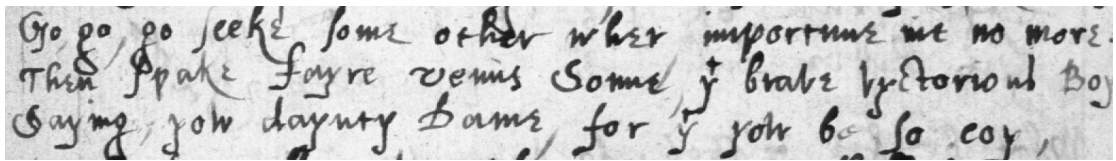 Go, go, go seeke some other wher importune me no more.
Then spake fayre venus Sonne, yt brave vyctorious Boy
Saying, yow daynty Dame, for yt yow be so coy,